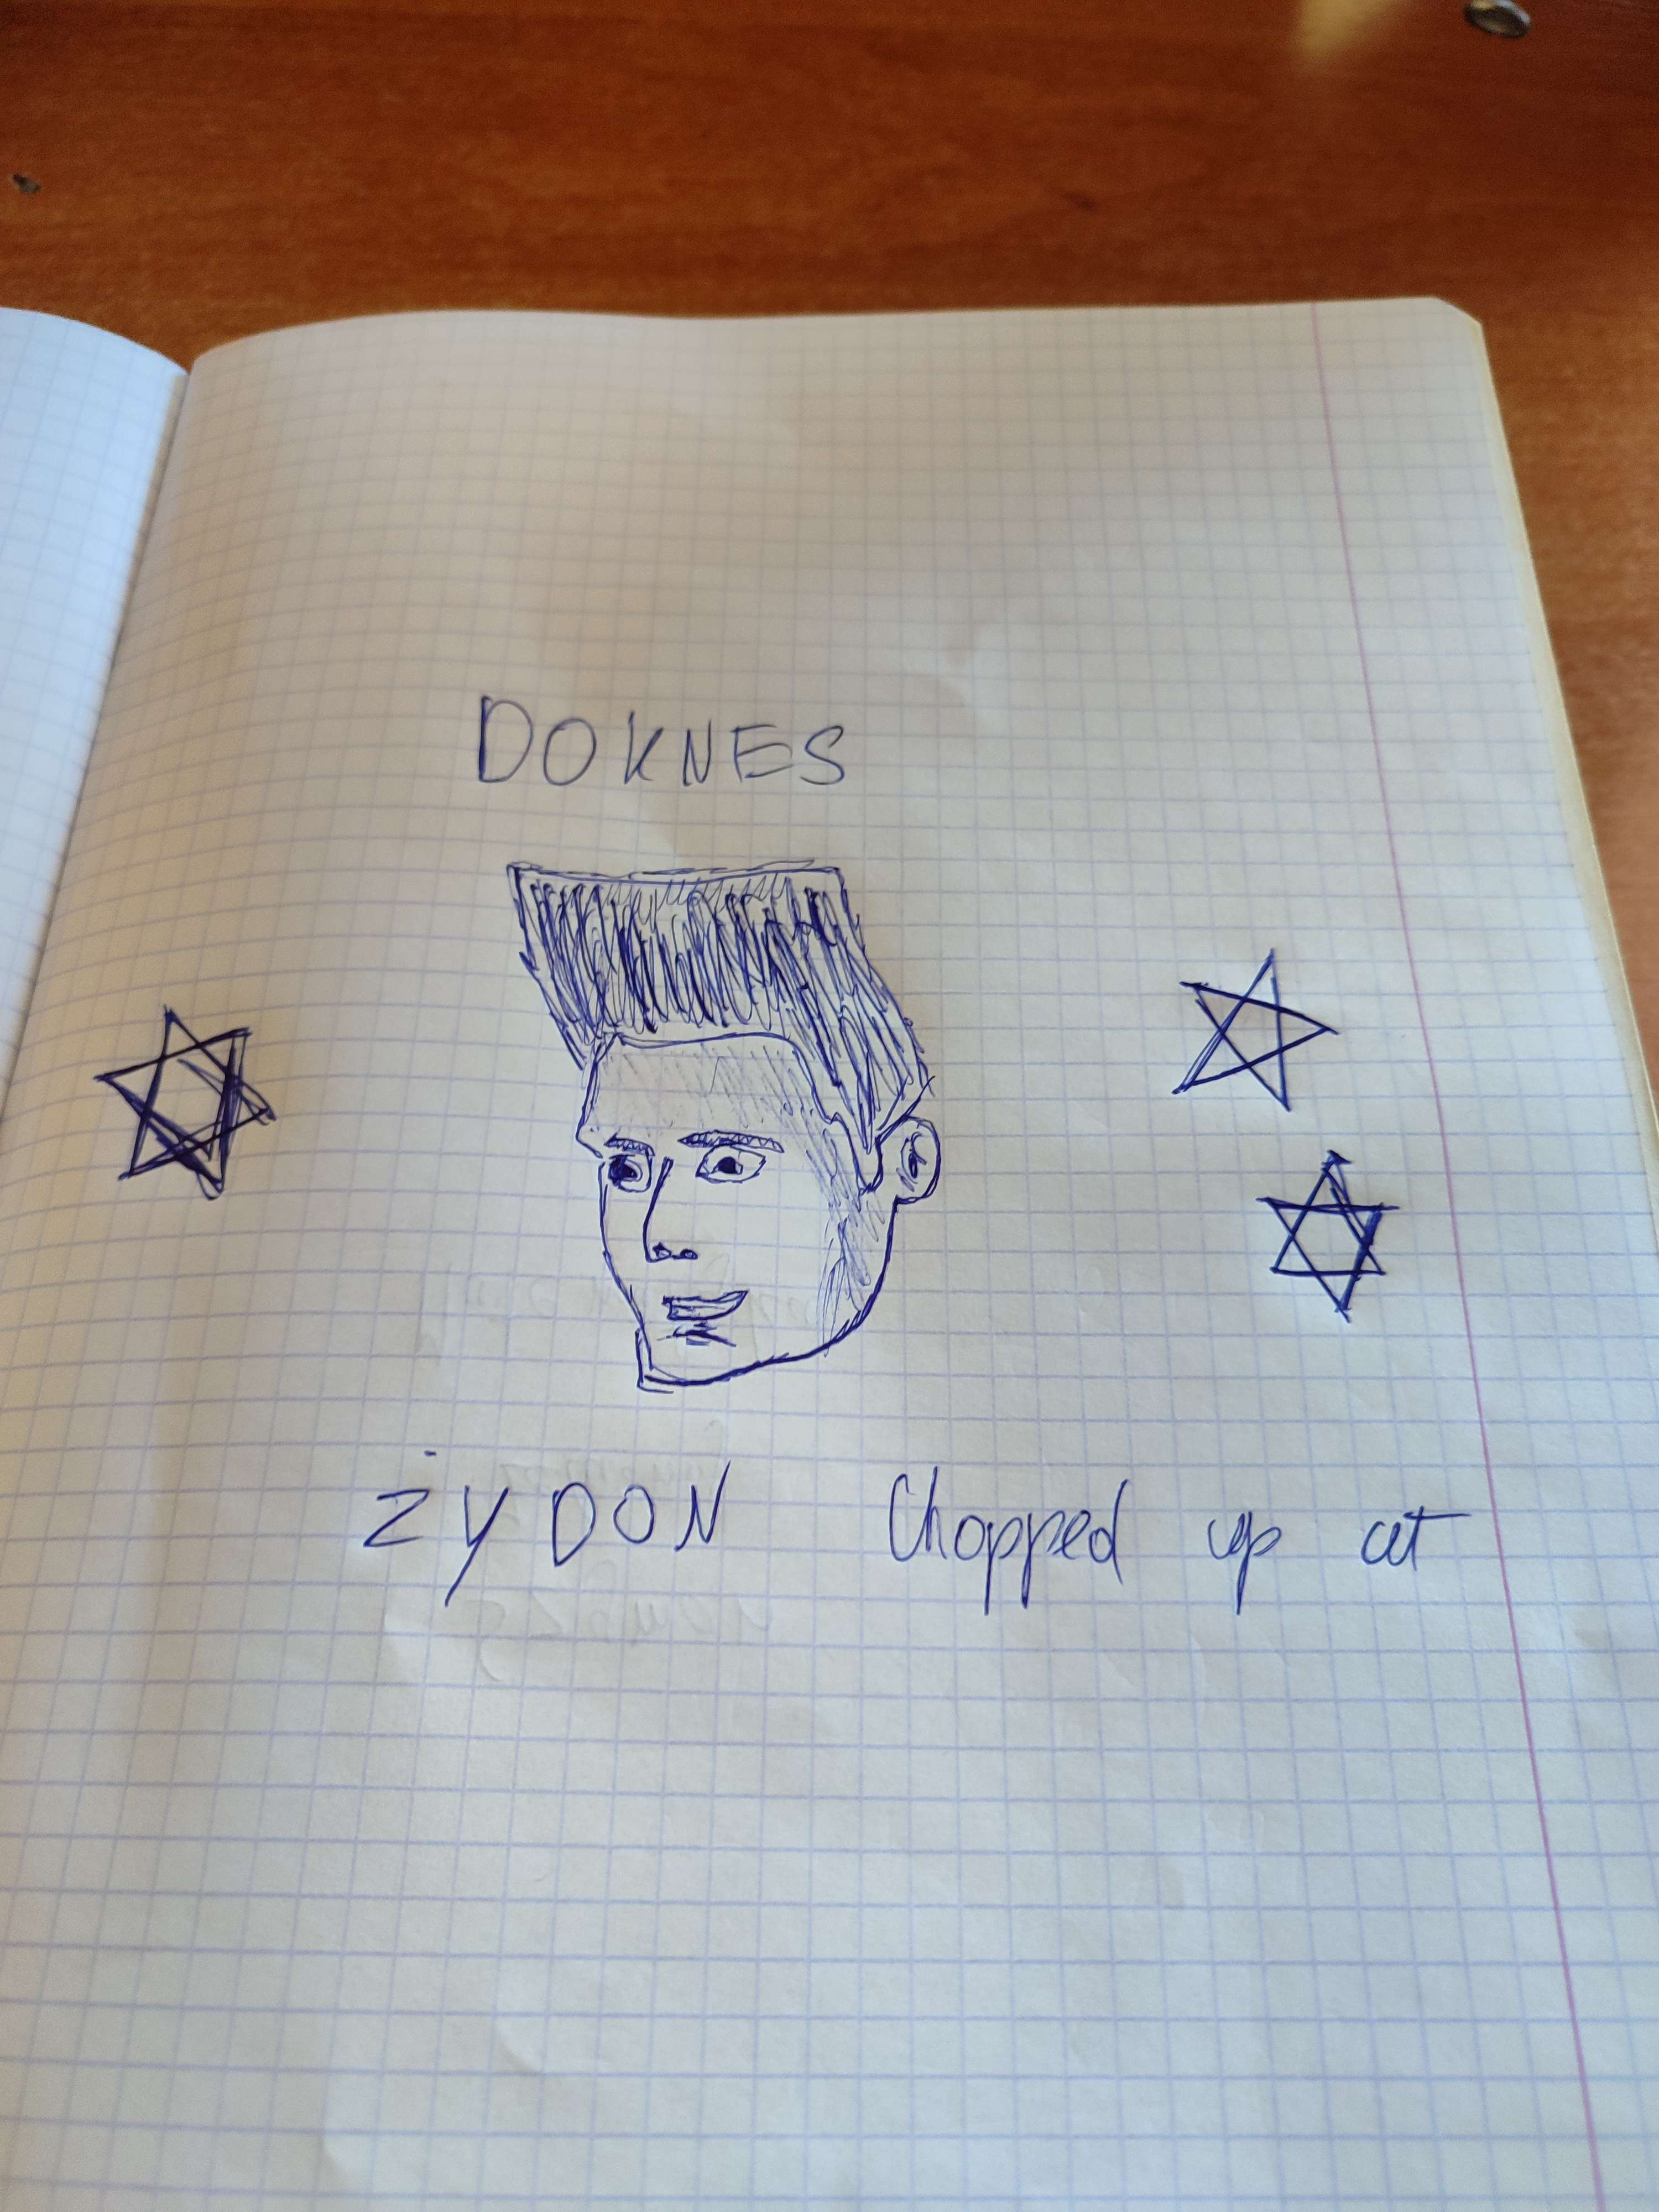 DOKNES
żyDON Chopped up at